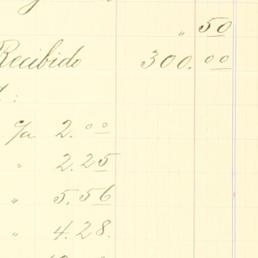 " 50
Recibido 300.00
:
c/u 2.00
" 2.25
" 5.56
" 4.28.